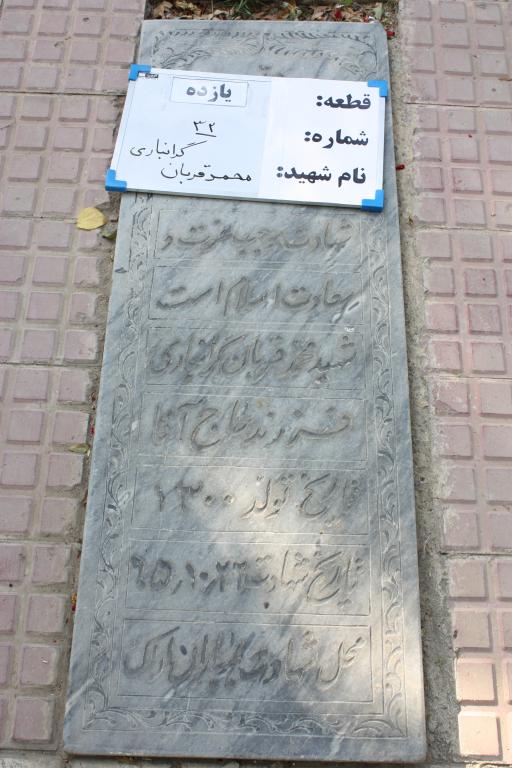 قطعه: یازده
شماره: ۳۲
نام شهید: محمدقربان گرانباری
شهادت موجب عزت و
سعادت اسلام است
شهید محمد قربان گرانباری
فرزند حاج آقا
تاریخ تولد ۱۳۰۰
تاریخ شهادت ۶۵٫۱۰٫۲۶
محل شهادت بمباران اراک